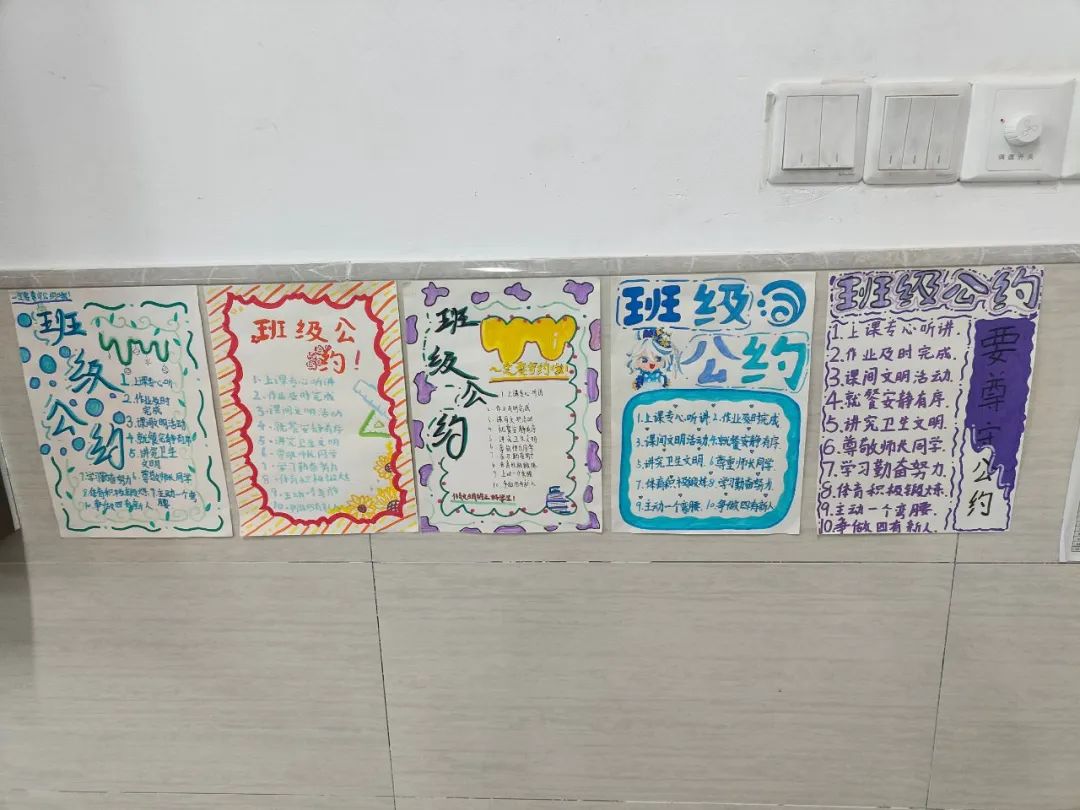 调速开关
一定要遵守公约哦!
班级公约
1 上课专心听
2.作业及时
完成
3.课间文明活动
4.就餐安静有序
5.讲究卫生
文明
7.学习勤奋努力
6.尊敬师长同学
8.体育积极锻炼
9.主动一个弯
腰
10.争做四有新人
班级公
约!
1.上课专心听讲
2.作业及时完成
3.课间文明活动
4.就餐安静有序
5.讲究卫生文明
6.尊敬师长同学
7.学习勤奋努力
8.体育积极锻炼
班级公约
一定要遵守约哦!
1.上课专心听讲
2.作业及时完成
3.课间文明活动
4.就餐安静有序
5.讲究卫生文明
6.尊敬师长同学
7.学习勤奋努力
8.体育积极锻炼
9.主动一个弯腰
10.争做四有新人
班级
公约
1.上课专心听讲 2.作业及时完成
3.课间文明活动 4.就餐安静有序
5.讲究卫生文明 6.尊重师长同学
7.体育积极锻炼 8.学习勤奋努力
9.主动一个弯腰 10.争做四有新人
班级公约
1.上课专心听讲.
2.作业及时完成.
3.课间文明活动.
4.就餐安静有序.
5.讲究卫生文明.
6.尊敬师长同学
7.学习勤奋努力.
8.体育积极锻炼.
9.主动一个弯腰.
10.争做四有新人.
要尊守公约